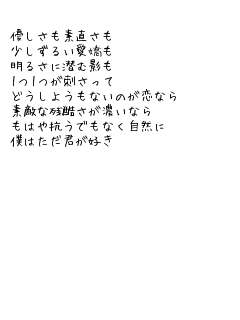 優しさも素直さも
少しずるい愛嬌も
明るさに潜む影も
1つ1つが刺さって
どうしようもないのが恋なら
素敵な残酷さが濃いなら
もはや抗うでもなく自然に
僕はただ君が好き